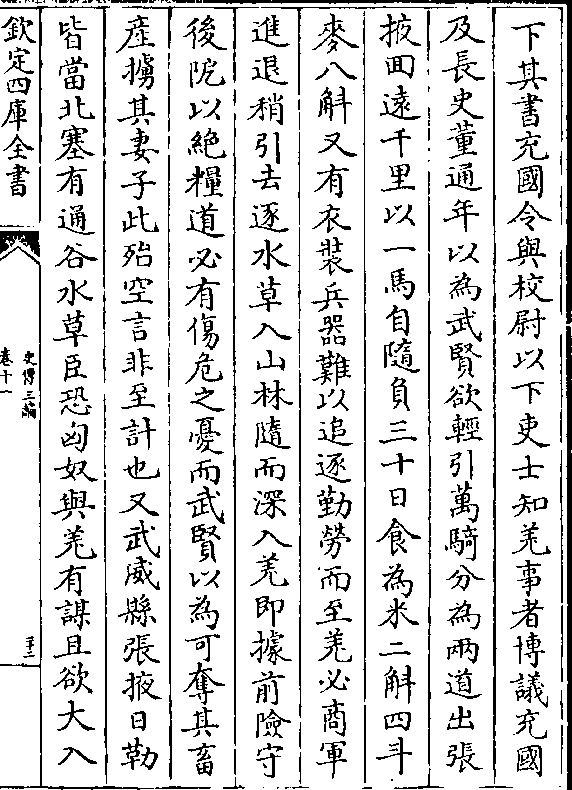 下其書充國令與校尉以下吏士知羌事者博議充國
及長史董通年以為武賢欲輕引萬騎分為兩道出張
掖回遠千里以一馬自隨負三十日食為米二斛四斗
麥八斛又有衣裝兵器難以追逐勤勞而至羌必商軍
進退稍引去逐水草入山林隨而深入羌即據前險守
後阨以絶糧道必有傷危之憂而武賢以為可奪其畜
産擄其妻子此殆空言非至計也又武威縣張掖日勒
皆當北塞有通谷水草臣恐匈奴與羌有謀且欲大入
欽定四庫全書
史傳三編
卷十一